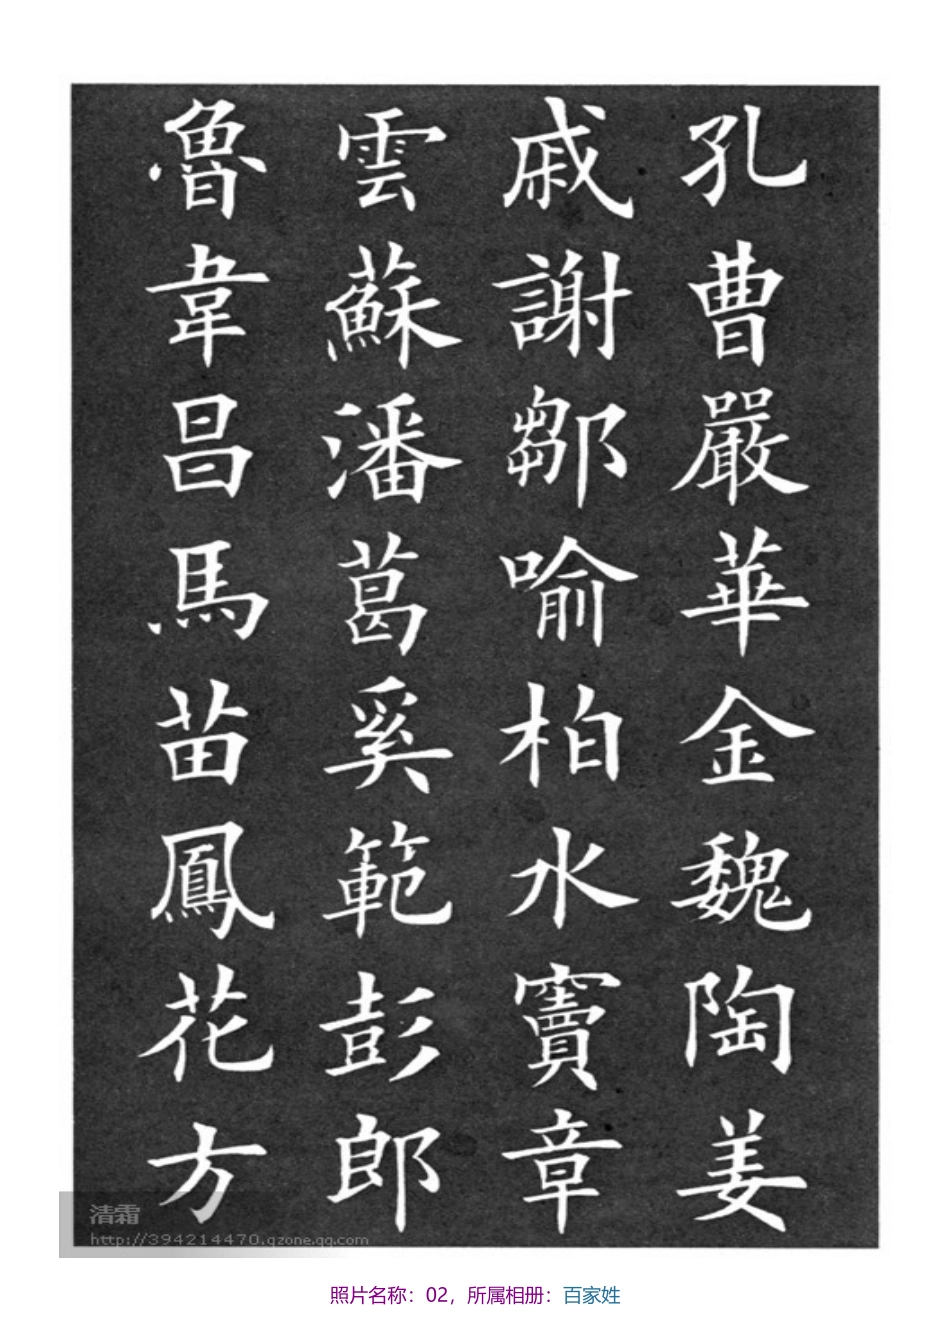 孔曹嚴華金魏陶姜
戚謝鄒喻柏水竇章
雲蘇潘葛奚範彭郎
魯韋昌馬苗鳳花方
清霜
http://394214470.qzone.qq.com
照片名称：02，所属相册：百家姓